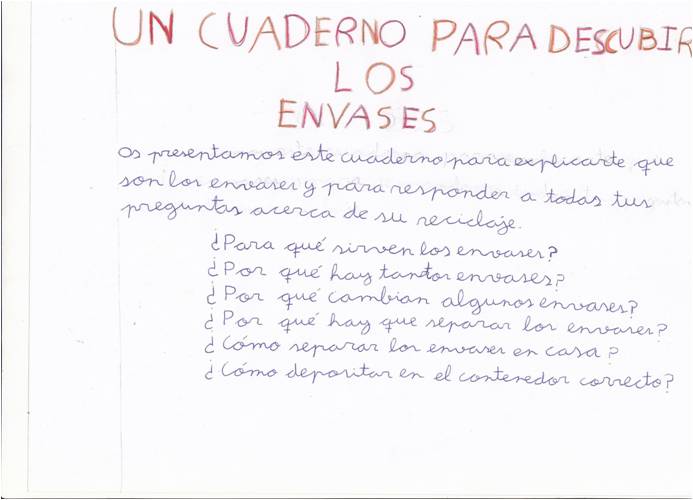 UN CUADERNO PARA DESCUBIR
LOS
ENVASES
Os presentamos este cuaderno para explicarte que
son los envases y para responder a todas tus
preguntas acerca de su reciclaje.
¿Para qué sirven los envases?
¿Por qué hay tantos envases?
¿Por qué cambian algunos envases?
¿Por qué hay que separar los envases?
¿Cómo separar los envases en casa?
¿Cómo depositar en el contenedor correcto?